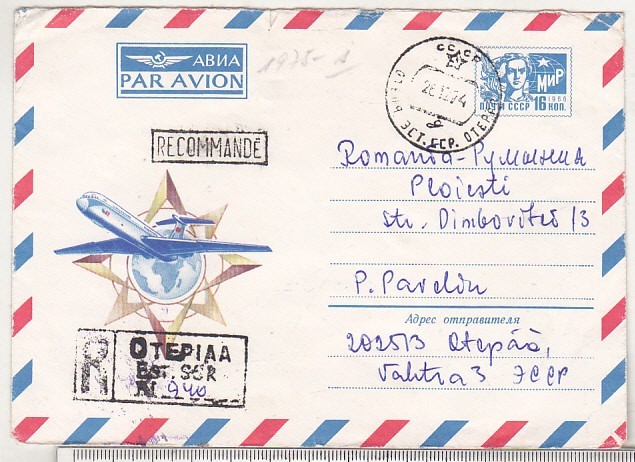 АВИА
PAR AVION
1975-1
СССР
28.12.74
ЭСТ. ССР. ОТЕПЯ
МИР
1966
ПОЧТА СССР 16 КОП.
RECOMMANDÉ
Romania-Румыния
Ploiesti
str. Dimbovitei 13
P. Pavelin
Адрес отправителя
202513 Otepää,
Valitra 3 ЭССР
R
OTEPIAA
EST. SSR
N 940